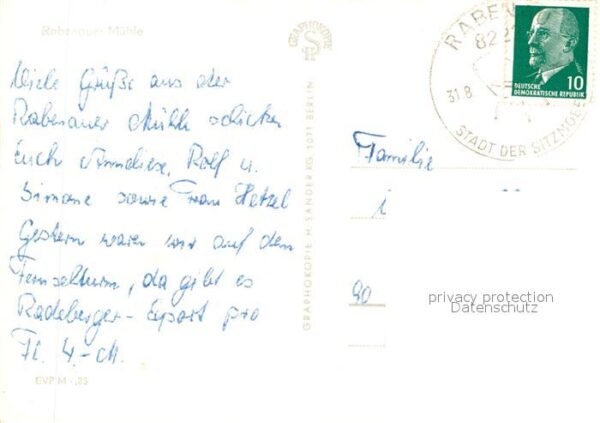 Rabenauer Mühle
Viele Grüße aus der
Rabenauer Mühle schicken
Euch Anneliese, Rolf u.
Simone sowie Frau Hetzel
Gestern waren wir auf dem
Fernsehturm, da gibt es
Radeberger-Export pro
Fl. 4,-M.
EVP M -,25
GRAPHOKOPIE
GRAPHOKOPIE H. SANDER KG, 1071 BERLIN
RABEN
822
31.8
STADT DER SITZMÖBE
DEUTSCHE
DEMOKRATISCHE REPUBLIK
10
Familie
90
privacy protection
Datenschutz